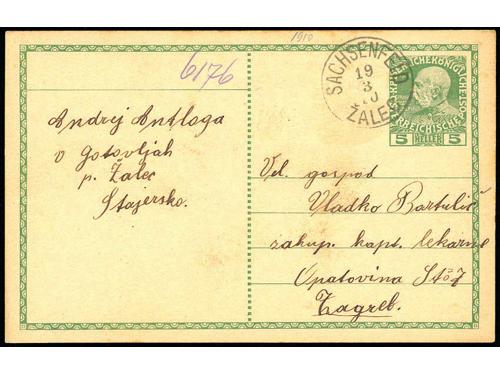 1910
6176
SACHSENFELD
19
3
10
ŽALEC
KAISERLICHEKÖNIGLICHE
ÖSTERREICHISCHE POST
5 HELLER 5
Andrej Antloga
v Gotovljah
p. Žalec
Štajersko.
Vel. gospod
Vladko Bartulić
zakup. kapt. lekarne
Opatovina
Zagreb.